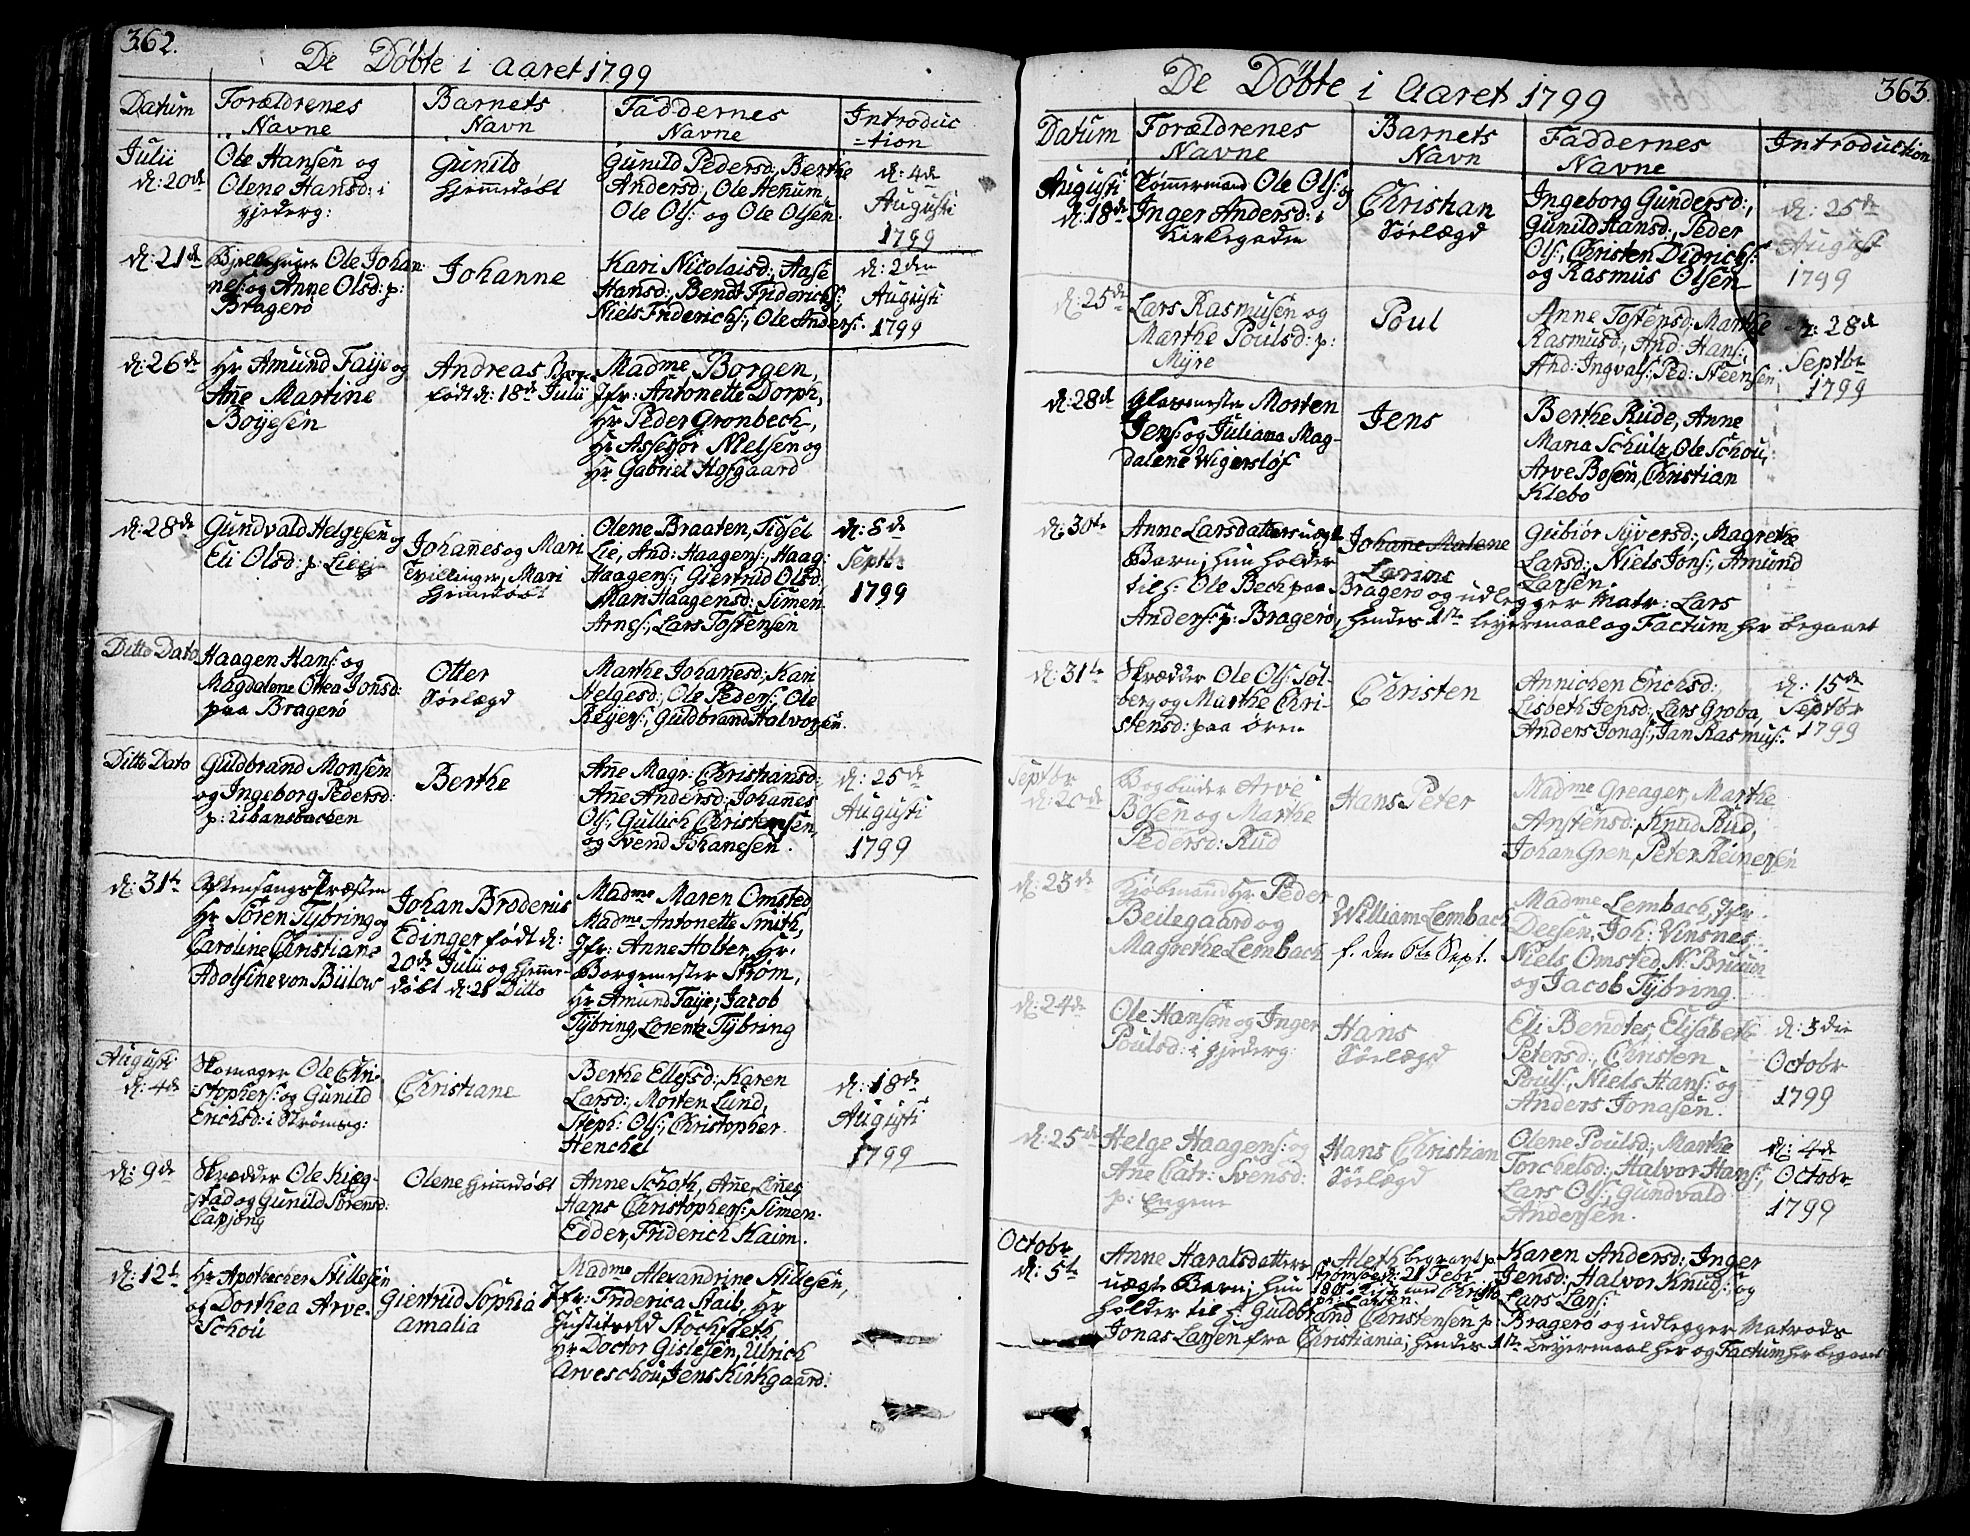 362.
De Døbte i Aaret 1799
Datum
Forældrenes
Navne
Barnets
Navn
Faddernes
Navne
Introduc
=tion
Julii
d: 20de
Ole Hansen og
Olene Hansd: i
Gunild
Hjemmedøbt
Gunild Pedersd:, Berthe
Andersd:, Ole Hemum
Ole Ols: og Ole Olsen.
d: 4de
Augusti
1799
d: 21de
Ole Johan
nes: og Anne Olsd: p:
Bragerø
Johanne
Kari Nicolaisd:, Aase
Hansd:, Bendt Friderichs:,
Niels Friderichs:, Ole Anders:
d: 2den
Augusti
1799
d: 26de
Hr Amund Taije og
Añe Martine
Boyesen
Andreas
født d: 18de Julii
Madme, Borgen,
Jfr: Antonette Dorph,
Hr Peder Gronbech,
Hr Assessor Nielsen og
Hr Gabriel Hofgaard
d: 28de
Gundvald Helgesen og
Eli Olsd: p: Lieej
Johañes og Mari
Tvillinger, Mari
Hjemmedøbt
Olene Braaten, Sidsel
Lie, And: Haagens:, Haag:
Haagens:, Giertrud Olsd:
Mari Haagensd: Simen
Arnes:, Lars Tostensen
d: 8de
Septbr
1799
Ditto Dato
Haagen Hans: og
Magdalene Ottea Jonsd:
paa Bragerø
Otter
Sørlægd
Marthe Johañesd:, Kari
Helgesd:, Ole Peders:, Ole
Reyers:, Guldbrand Halvorsen.
Ditto Dato
Guldbrand Monsen
og Ingeborg Pedersd:
p: Ubansbachen
Berthe
Añe Magr: Christiansd:
Añe Andersd:, Johannes
Ols:, Gullich Christensen,
og Svend Johanesen.
d: 25de
Augusti
1799
d: 31te
AftensangsPræsten
Hr Søren Tybring og
Caroline Christiane
Adolfine von Bülow
Johan Broderus
Edinger født d:
20de Julii og hjemme-
døbt d: 21 Ditto
Madme Maren Omsted
Madme Antonette Smith,
Jfr: Anne Holter, Hr.
Borgemester Strøm,
Hr Amund Taije, Jacob
Tybring, Lorentz Tybring
Augusti
d: 4de
Skomager Ole Chri-
stophers: og Gunild
Erichsd: i Strømsg:
Christiane
Berthe Ellefsd:, Karen
Larsd:, Morten Lund,
Steph: Ols:, Christopher
Henchel
d: 18de
Augusti
1799
d: 9de
Skrædder Ole Kieg-
stad og Gunild Sørensd:
Olene Hjemmedøbt
Anne Schøth, Añe Lines,
Hans Christophers:, Simen
Edder, Friderich Kaim.
d: 12te
Hr Apothecher Stillesen
og Dorthea Arve-
Schou
Giertrud Sophia
Amalia
Madme Alexandrine Stillesen,
Jfr: Friderica Staib, Hr
Justitsraad Stochfleth
Hr Doctor Gislesen, Ulrich
Arveschou, Jens Kirkgaard.
363.
De Døbte i Aaret 1799
Datum
Forældrenes
Navne
Barnets
Navn
Faddernes
Navne
Introduction
Augusti
d: 18de
Tømmermand Ole Ols: og
Inger Andersd: i
Kirkegaden
Christian
Sørlægd
Ingeborg Gundersd:,
Gunild Hansd:, Peder
Ols:, Christen Didrichs:
og Rasmus Olsen
d: 25de
August
1799
d: 25de
Lars Rasmusen og
Marthe Poulsd: p:
Myre
Poul
Anne Tostensd: Marthe
Rasmusd:, And: Hans:,
And: Ingvals: Ped: Neensen
d: 28de
Septbr
1799
d: 28de
Glasmester Morten
Jens: og Juliana Mag-
dalene Wigersløf
Jens
Berthe Rude, Anne
Maria Schulz, Ole Schou,
Arve Bosen, Christian
Klebo
d: 30te
Anne Larsdatters uægte
Barn; hun holder
til: Ole Bech paa Bragerø og udlegger Matr: Lars
Anders: p: Bragerø, hendes 1ste Leyermaal og Factum her begaaet
Johañe Malene
Larine
Gubiør Syversd:, Magrethe
Larsd:, Niels Jons:, Amund
Larsen.
d: 31te
Skrædder Ole Ols: Sol-
berg og Marthe Chri-
stensd: paa Øren
Christen
Annichen Erichsd:,
Lisbeth Jensd:, Lars Groba,
Anders Jonas:, Jan Rasmus:
d: 15de
Septbr
1799
Septbr
d: 20de
Bogbinder Arve
Bosen og Marthe
Pedersd: Rud
Hans Peter
Madme Greager, Marthe
Anstensd:, Knud Rud,
Johan Gren, Peter Reinersen
d: 23de
Kjøbmand Hr Peder
Beilegaard og
Magrethe Lembach
William Lembach
f. den 6te Sept.
Madme Lembach, Jfr.
Deesen, Joh: Vinsnes,
Niels Omsted, N. Bruun
og Jacob Tybring
d: 24de
Ole Hansen og Inger
Poulsd: i
Hans
Sørlægd
Eli Bendtes, Elisabeth
Petersd:, Christen
Pouls:, Niels Hans: og
Anders Jonasen.
d: 3die
Octobr
1799
d: 25de
Helge Haagens: og
Ane Catr: Svensd:
p: Engene
Hans Christian
Sørlægd
Olene Poulsd:, Marthe
Torchelsd:, Halvor Hans:,
Lars Ols:, Gundvald
Andersen.
d: 4de
Octobr
1799
Octobr
d: 5te
Anne Haralsdatters
uægte Barn; hun
holder til H Guldbrand Christensen p: Bragerø og udlegger Matrods
Jonas Larsen fra Christiania; hendes 1ste Leyermaal her og Factum her begaaet
Aleth begravet p:
Strømsøe d: 21 Febr
Karen Andersd:, Inger
Jensd:, Halvor Knuds: og
Lars Lars: